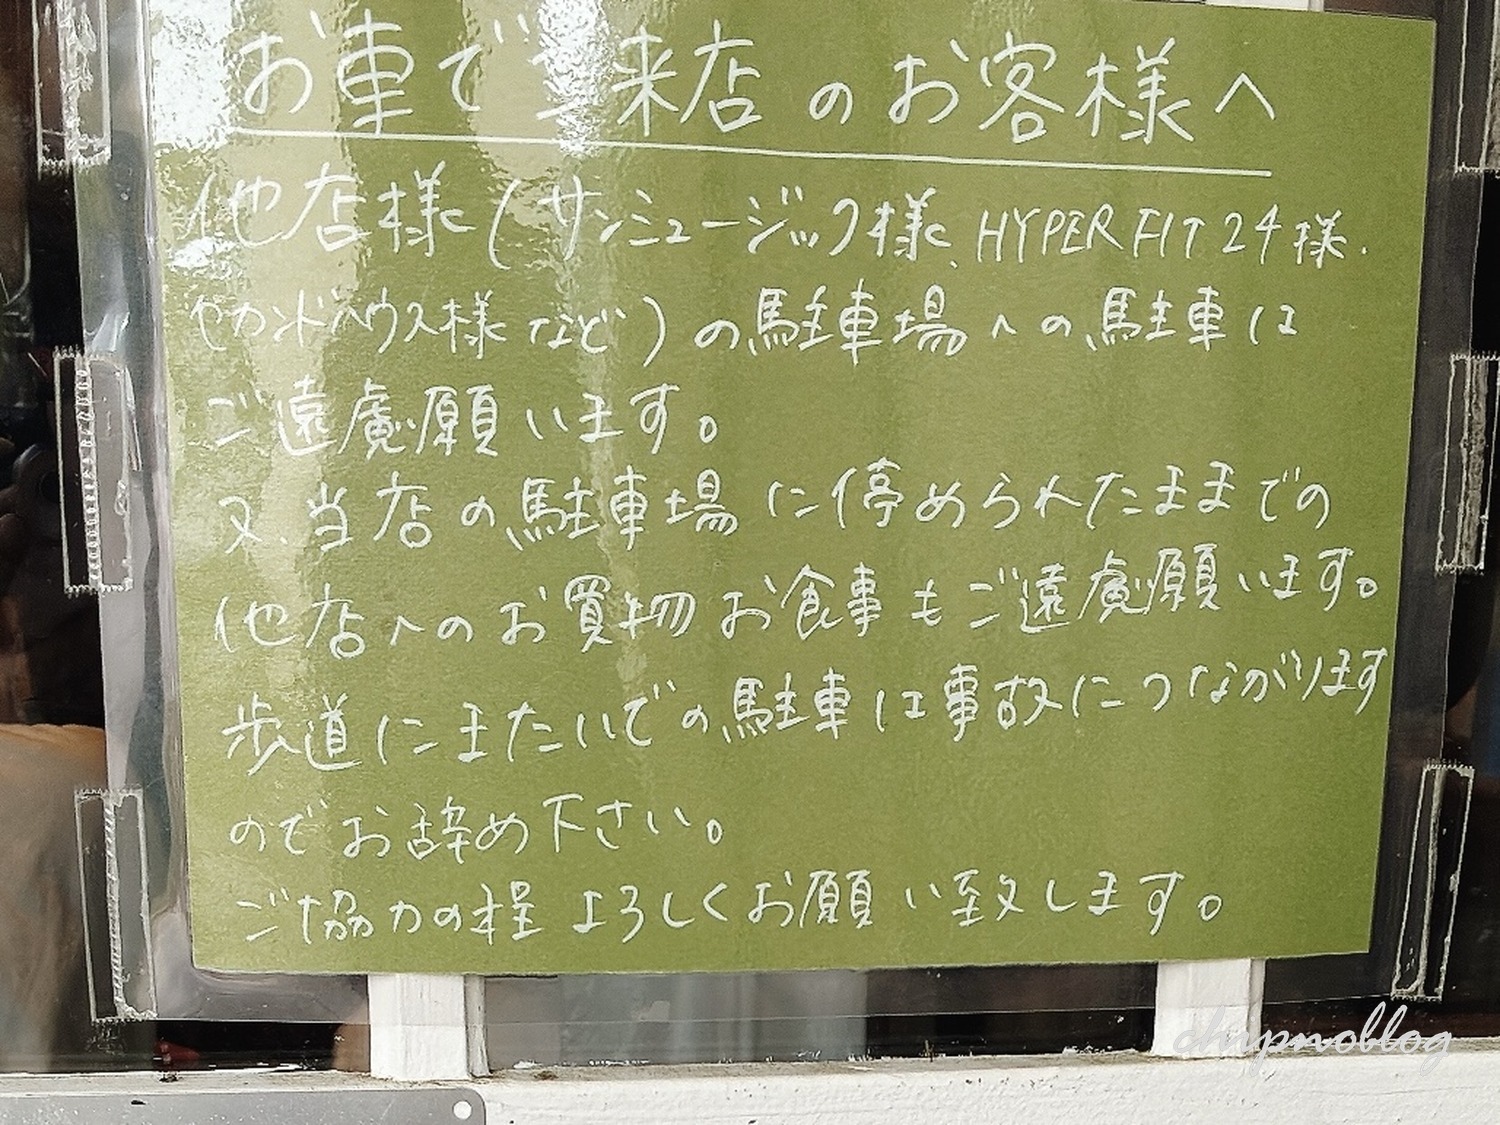 お車でご来店のお客様へ
他店様(サンミュージック様、HYPER FIT 24様.
セカンドハウス様など)の駐車場への駐車は
ご遠慮願います。
又、当店の駐車場に停められたままでの
他店へのお買物お食事もご遠慮願います。
歩道にまたいでの駐車は事故につながります
のでお辞め下さい。
ご協力の程よろしくお願い致します。
chipnoblog